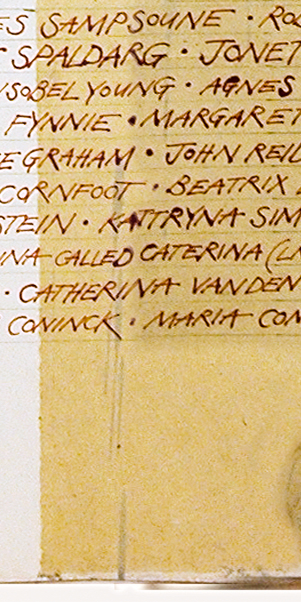 ES SAMPSOUNE · RO
SPALDARG · JONET
ISOBEL YOUNG · AGNES
FYNNIE · MARGARET
GRAHAM · JOHN REIL
CORNFOOT · BEATRIX
STEIN · KATTRYNA SIM
INA CALLED CATERINA (LA
· CATHERINA VANDEN
CONINCK · MARIA CON